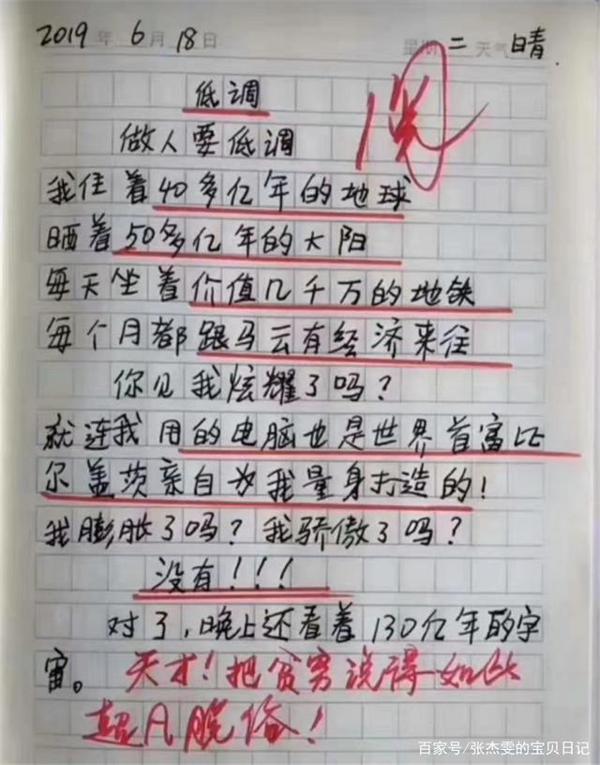 2019年6月18日 星期二 天气晴
低调
阅
做人要低调
我住着40多亿年的地球
晒着50多亿年的太阳
每天坐着价值几千万的地铁
每个月都跟马云有经济来往
你见我炫耀了吗?
就连我用的电脑也是世界首富比
尔盖茨亲自为我量身打造的!
我膨胀了吗?我骄傲了吗?
没有!!!
对了,晚上还看着130亿年的宇
宙。天才!把贫穷说得如此
超凡脱俗!
百家号/张杰雯的宝贝日记